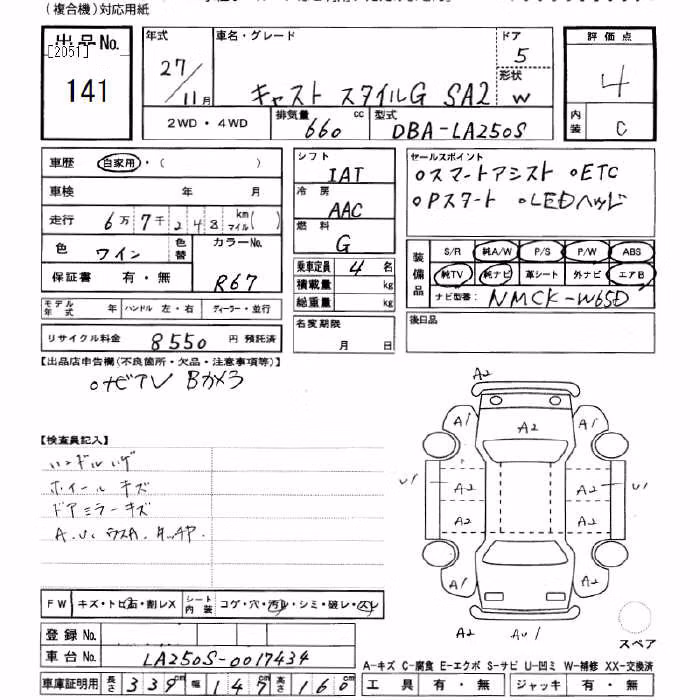 (複合機)対応用紙
出品No.
[2051]
141
年式
27/11月
車名・グレード
キャスト スタイルG SA2
ドア
5
形状
W
評価点
4
内装
C
2WD・4WD
排気量
660 cc
型式
DBA-LA250S
車歴
自家用・( )
車検 年 月
走行 6万7千248 km マイル( )
色 ワイン 色替
カラーNo.
R67
保証書 有・無
モデル年式 年 ハンドル 左・右 ディーラー・並行
リサイクル料金 8550 円 預託済
シフト
IAT
冷房
AAC
燃料
G
乗車定員 4 名
積載量 kg
総重量 kg
名変期限
月 日
セールスポイント
○スマートアシスト ○ETC
○Pスタート ○LEDヘッド
装備品
S/R 純A/W P/S P/W ABS
純TV 純ナビ 革シート 外ナビ エアB
ナビ型番: NMCK-W65D
後日品
【出品店申告欄(不良箇所・欠品・注意事項等)】
○ナビTV Bカメラ
【検査員記入】
ハンドルハゲ
ホイールキズ
ドアミラーキズ
A.U. ウスA. タッチP.
FW キズ・トビ石・割レX シート内装 コゲ・穴・汚レ・シミ・破レ・スレ
登録No.
車台No. LA250S-0017434
車庫証明用 長さ 339 cm 幅 147 cm 高さ 160 cm
A2
A1 A2 A1
U1 A2 A2 U1
A2 A2
A1 A2
A2 AU1
スペア
A-キズ C-腐食 E-エクボ S-サビ U-凹ミ W-補修 XX-交換済
工具 有・無 ジャッキ 有・無